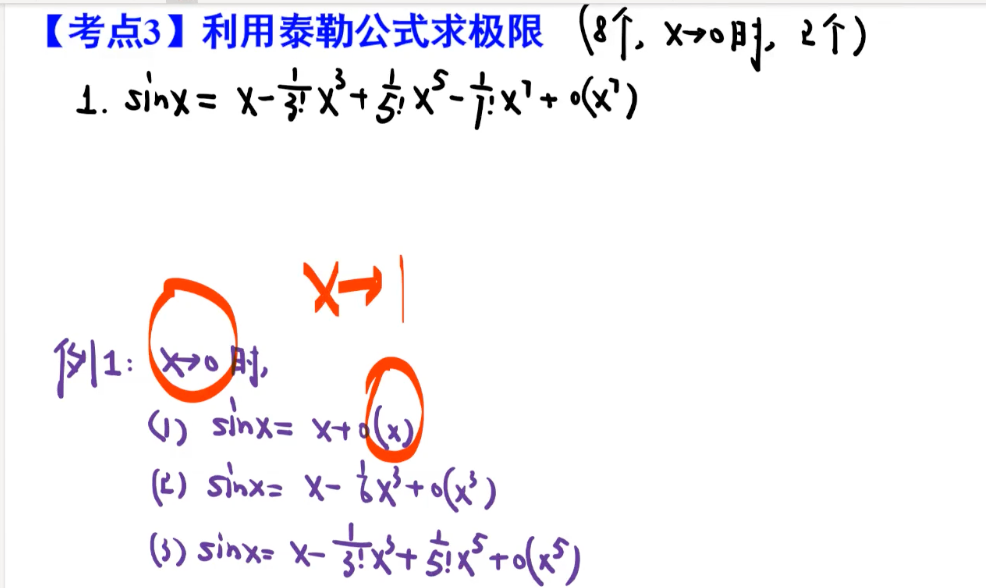 【考点3】利用泰勒公式求极限 (8个, x→0时, 2个)
1. sinx = x - 1/3! x³ + 1/5! x⁵ - 1/7! x⁷ + o(x⁷)
x→1
例1: x→0时,
(1) sinx = x + o(x)
(2) sinx = x - 1/6 x³ + o(x³)
(3) sinx = x - 1/3! x³ + 1/5! x⁵ + o(x⁵)